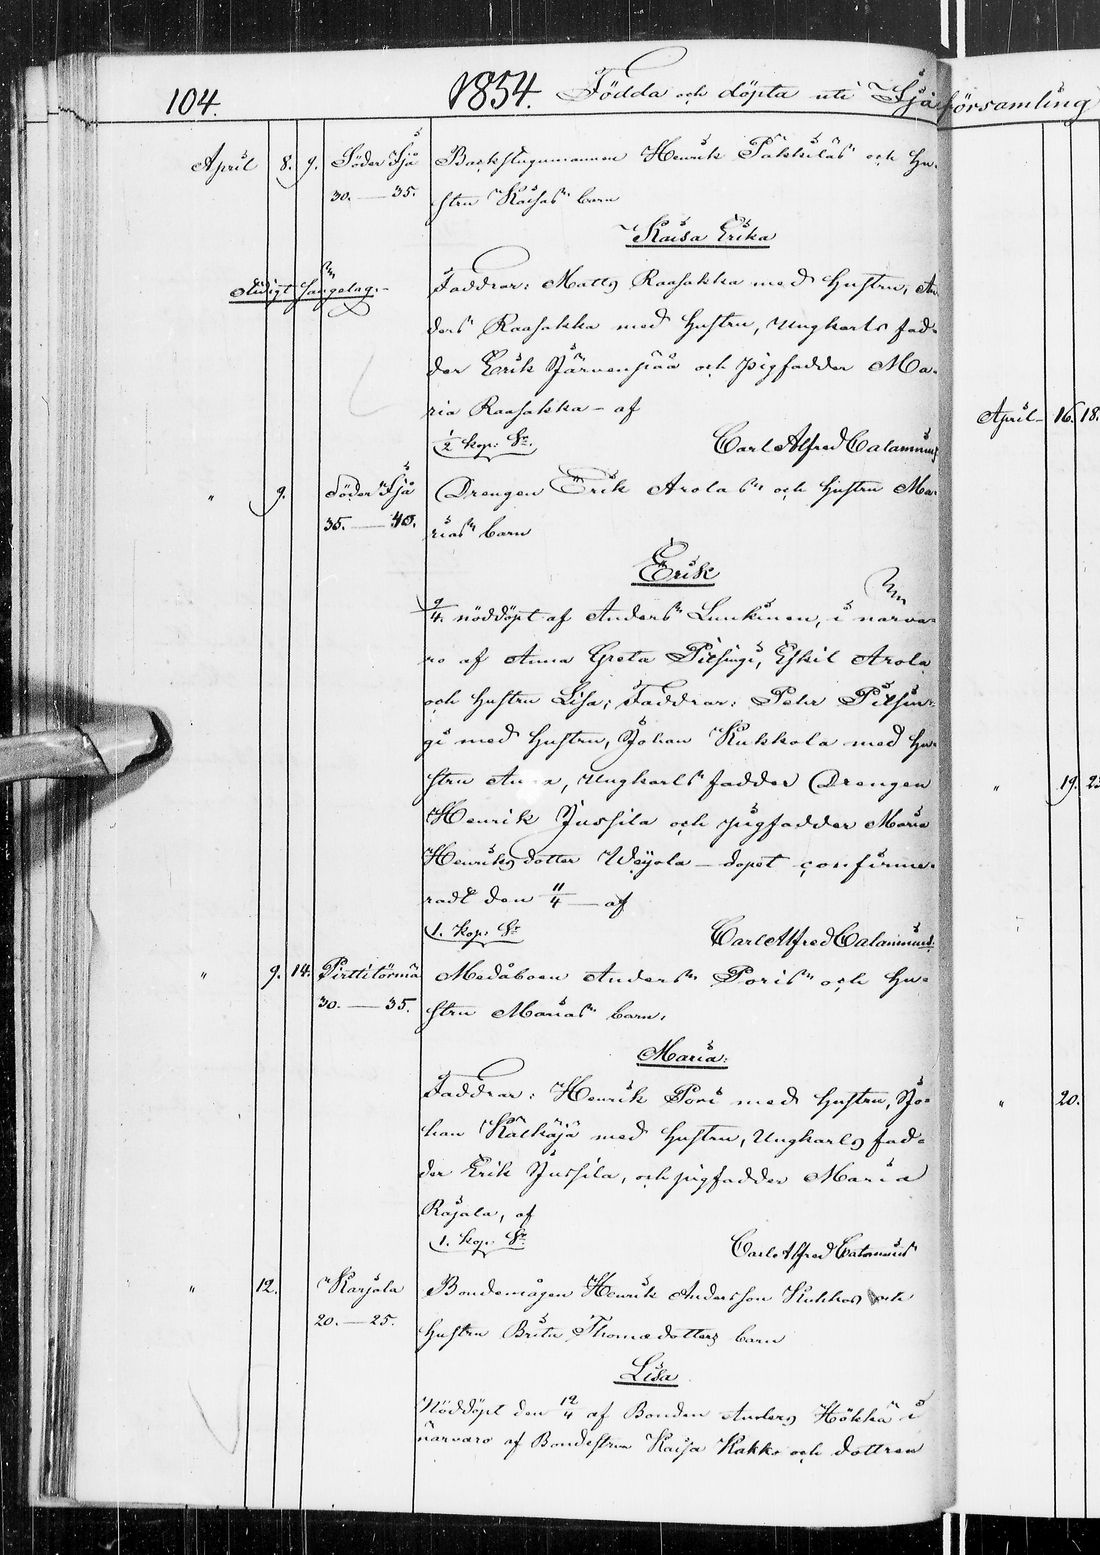 104. 1854. Födda och döpta uti Ijå församling
April 8. 9. Söder Ijå Backstugumannen Henrik Pakkilas och hu-
30. — 35. stru Kaisas barn
Kaisa Erika
Faddrar: Matts Raasakka med hustru, An-
ders Raasakka med hustru, Ungkarls fad-
der Erik Järvenpää och pigfadder Ma-
ria Raasakka — af
1/2 kop: Sr. Carl Alfred Calamnius
" 9. Söder Ijå Drengen Erik Arolas och hustru Ma-
35. — 40. rias barn
Erik
9/4. nöddöpt af Anders Lunkinen, i närva-
ro af Anna Greta Pilsingi, Eskil Arola
och hustru Lisa; Faddrar: Pehr Pilsin-
gi med hustru, Johan Kukkola med hu-
stru Anna, Ungkarls fadder Drengen
Henrik Jussila och pigfadder Maria
Henriks dotter Weijola — dopet confirme-
radt den 11/4 — af
1. kop: Sr. Carl Alfred Calamnius.
" 9. 14. Pirttitörmä Medåboen Anders Poris och hu-
30. — 35. stru Marias barn,
Maria:
Faddrar: Henrik Pori med hustru, Jo-
han Kalkaja med hustru, Ungkarls fad-
der Erik Jussila, och pigfadder Maria
Rajala, af
1. kop: Sr. Carl Alfred Calamnius
" 12. Karjala Bondemågen Henrik Andersson Kukkos och
20. — 25. hustru Brita Thomædotters barn
Lisa
Nöddöpt den 12/4 af Bonden Anders Hökkä i
närvaro af Bondestrun Kaisa Kakko och dottren
April 16. 18.
" 19.
" 20.